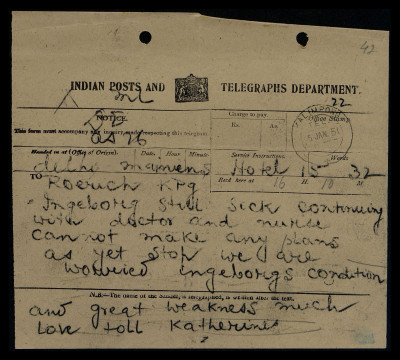 42
INDIAN POSTS AND TELEGRAPHS DEPARTMENT.
22
NOTICE.
Charge to pay.
Office Stamp
This form must accompany any inquiry made respecting this telegram.
Rs. As.
JAN. 51
as 16
Handed in at (Office of Origin). Date. Hour. Minute. Service Instructions. Words.
Delhi maidens Hotel 15 32
TO
Recd. here at 16 H. M.
Roerich Kpg
Ingeborg still sick continuing
with doctor and nurse
cannot make any plans
as yet stop we are
worried ingeborgs condition
N.B.—The name of the Sender, if telegraphed, is written after the text.
and great weakness much
love toll Katherine